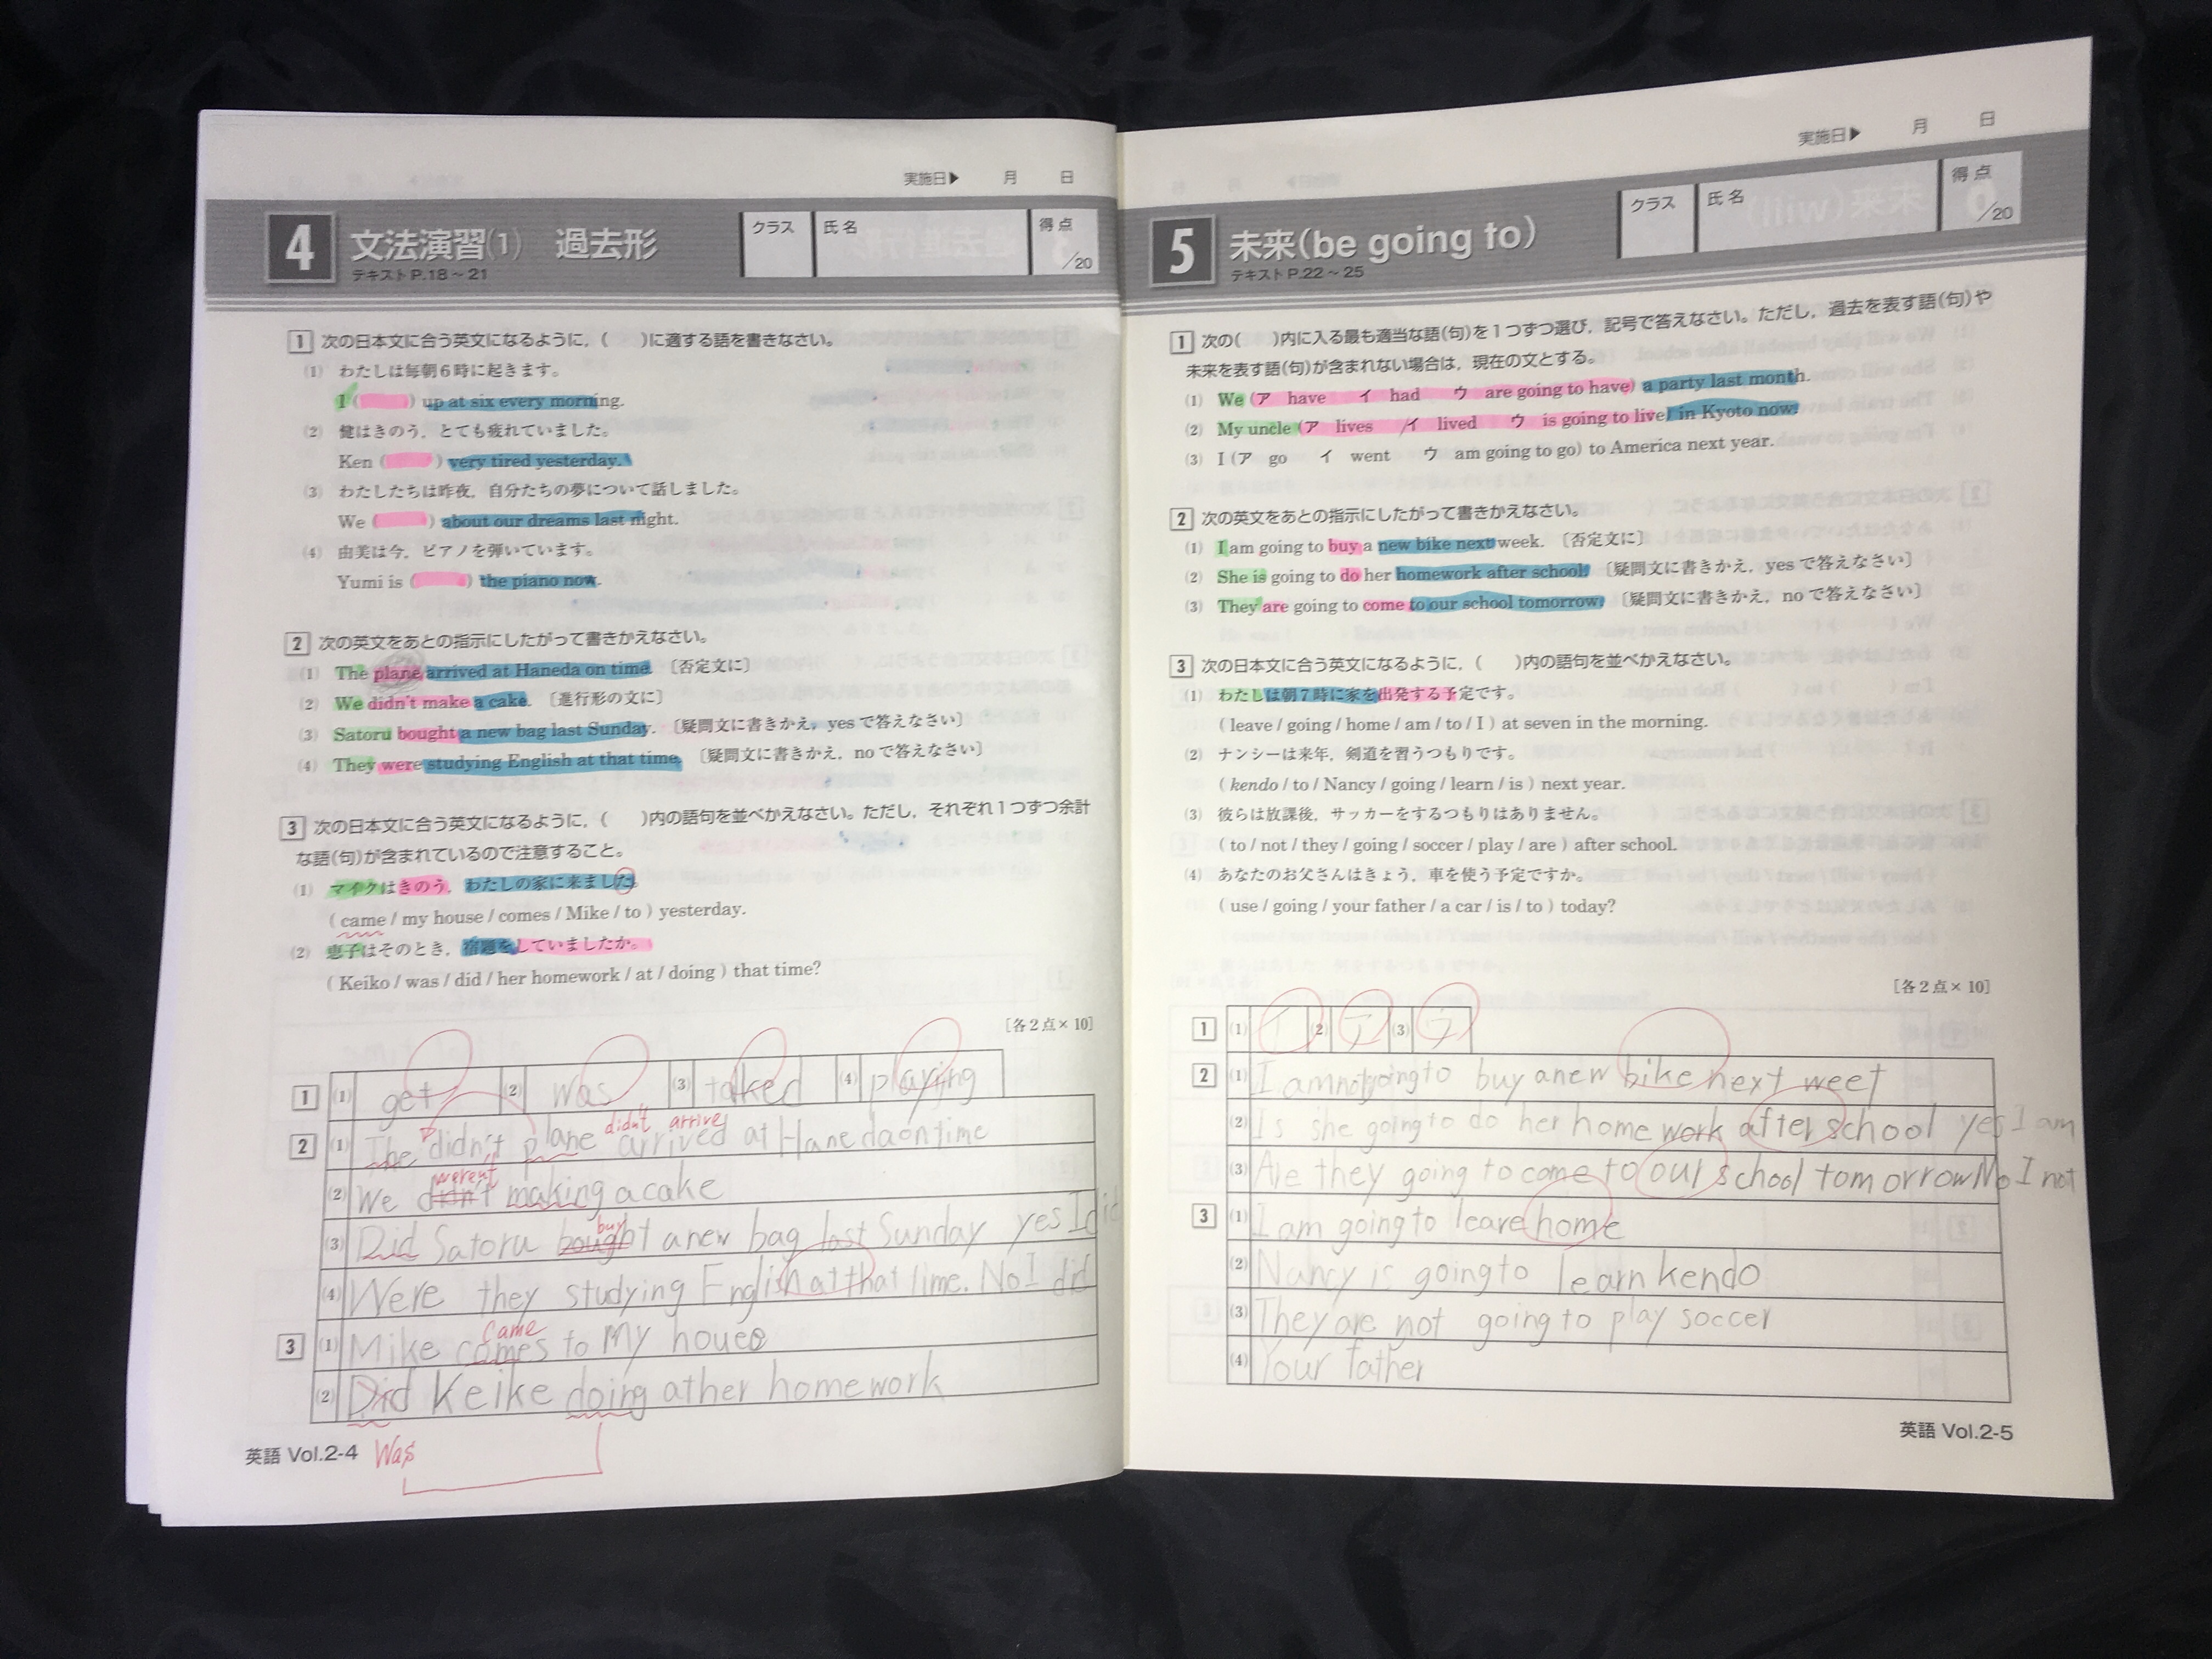 実施日▶ 月 日
4 文法演習(1) 過去形
テキストP.18～21
クラス 氏名 得点 /20
1 次の日本文に合う英文になるように，( )に適する語を書きなさい。
(1) わたしは毎朝6時に起きます。
I ( ) up at six every morning.
(2) 健はきのう，とても疲れていました。
Ken ( ) very tired yesterday.
(3) わたしたちは昨夜，自分たちの夢について話しました。
We ( ) about our dreams last night.
(4) 由美は今，ピアノを弾いています。
Yumi is ( ) the piano now.
2 次の英文をあとの指示にしたがって書きかえなさい。
(1) The plane arrived at Haneda on time. 〔否定文に〕
(2) We didn't make a cake. 〔進行形の文に〕
(3) Satoru bought a new bag last Sunday. 〔疑問文に書きかえ，yesで答えなさい〕
(4) They were studying English at that time. 〔疑問文に書きかえ，noで答えなさい〕
3 次の日本文に合う英文になるように，( )内の語句を並べかえなさい。ただし，それぞれ1つずつ余計
な語(句)が含まれているので注意すること。
(1) マイクはきのう，わたしの家に来ました。
( came / my house / comes / Mike / to ) yesterday.
(2) 恵子はそのとき，宿題をしていましたか。
( Keiko / was / did / her homework / at / doing ) that time?
[各2点×10]
1 (1) get (2) was (3) talked (4) playing
didn't arrive
2 (1) The didn't plane arrived at Hanedaontime
weren't
(2) We didn't making a cake
buy
(3) Did Satoru bought a new bag last Sunday yes I did
(4) Were they studying English at that time. No I did
came
3 (1) Mike comes to My houes
(2) Did Keike doing at her homework
Was
英語 Vol.2-4
実施日▶ 月 日
5 未来(be going to)
テキストP.22～25
クラス 氏名 得点 /20
1 次の( )内に入る最も適当な語(句)を1つずつ選び，記号で答えなさい。ただし，過去を表す語(句)や
未来を表す語(句)が含まれない場合は，現在の文とする。
(1) We (ア have イ had ウ are going to have) a party last month.
(2) My uncle (ア lives イ lived ウ is going to live) in Kyoto now.
(3) I (ア go イ went ウ am going to go) to America next year.
2 次の英文をあとの指示にしたがって書きかえなさい。
(1) I am going to buy a new bike next week. 〔否定文に〕
(2) She is going to do her homework after school. 〔疑問文に書きかえ，yesで答えなさい〕
(3) They are going to come to our school tomorrow. 〔疑問文に書きかえ，noで答えなさい〕
3 次の日本文に合う英文になるように，( )内の語句を並べかえなさい。
(1) わたしは朝7時に家を出発する予定です。
( leave / going / home / am / to / I ) at seven in the morning.
(2) ナンシーは来年，剣道を習うつもりです。
( kendo / to / Nancy / going / learn / is ) next year.
(3) 彼らは放課後，サッカーをするつもりはありません。
( to / not / they / going / soccer / play / are ) after school.
(4) あなたのお父さんはきょう，車を使う予定ですか。
( use / going / your father / a car / is / to ) today?
[各2点×10]
1 (1) イ (2) ア (3) ウ
2 (1) I am not going to buy a new bike next weet
(2) Is she going to do her home work after school yes I am
(3) Are they going to come to our school tomorrow No I not
3 (1) I am going to leave home
(2) Nancy is going to learn kendo
(3) They are not going to play soccer
(4) Your father
英語 Vol.2-5